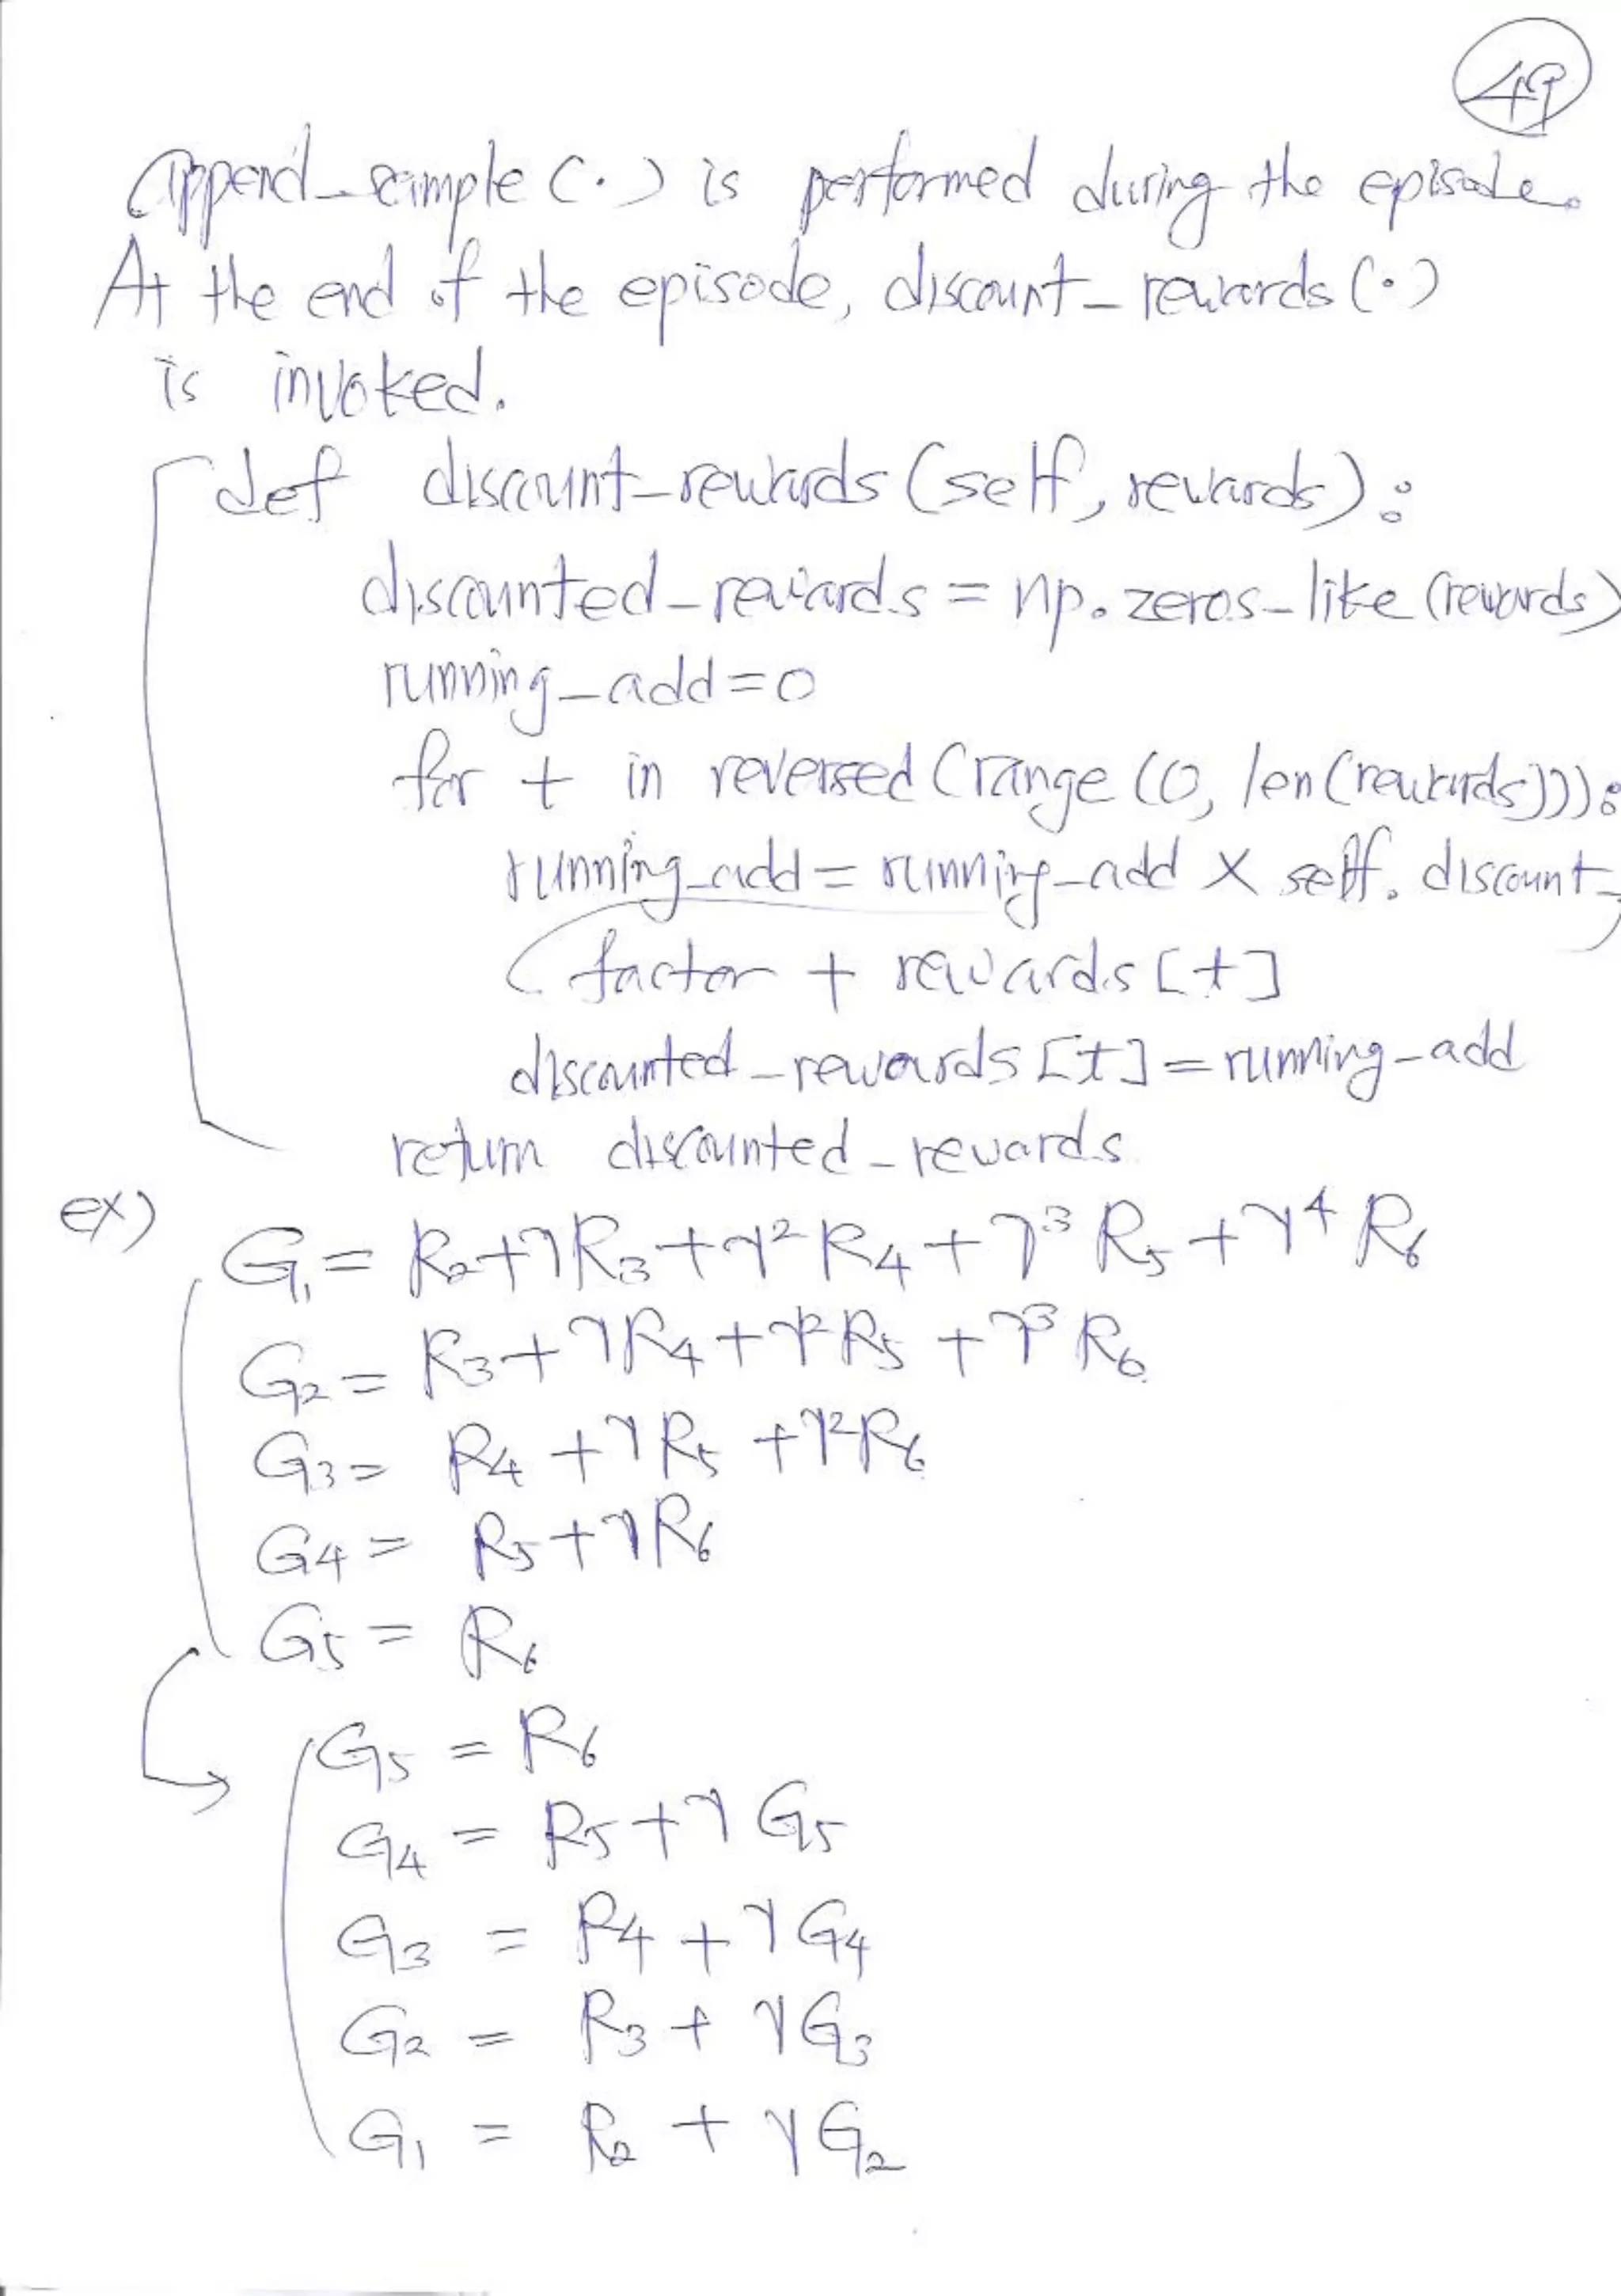 49
append_sample (·) is performed during the episode.
At the end of the episode, discount_rewards (·)
is invoked.
def discount_rewards (self, rewards):
discounted_rewards = np.zeros_like (rewards)
running_add=0
for t in reversed (range (0, len (rewards))):
running_add = running_add × self. discount_
factor + rewards [t]
discounted_rewards [t] = running_add
return discounted_rewards
ex)
G₁ = R₂+γR₃+γ²R₄+γ³R₅+γ⁴R₆
G₂ = R₃+γR₄+γ²R₅+γ³R₆
G₃ = R₄+γR₅+γ²R₆
G₄ = R₅+γR₆
G₅ = R₆
G₅ = R₆
G₄ = R₅+γG₅
G₃ = R₄+γG₄
G₂ = R₃+γG₃
G₁ = R₂+γG₂